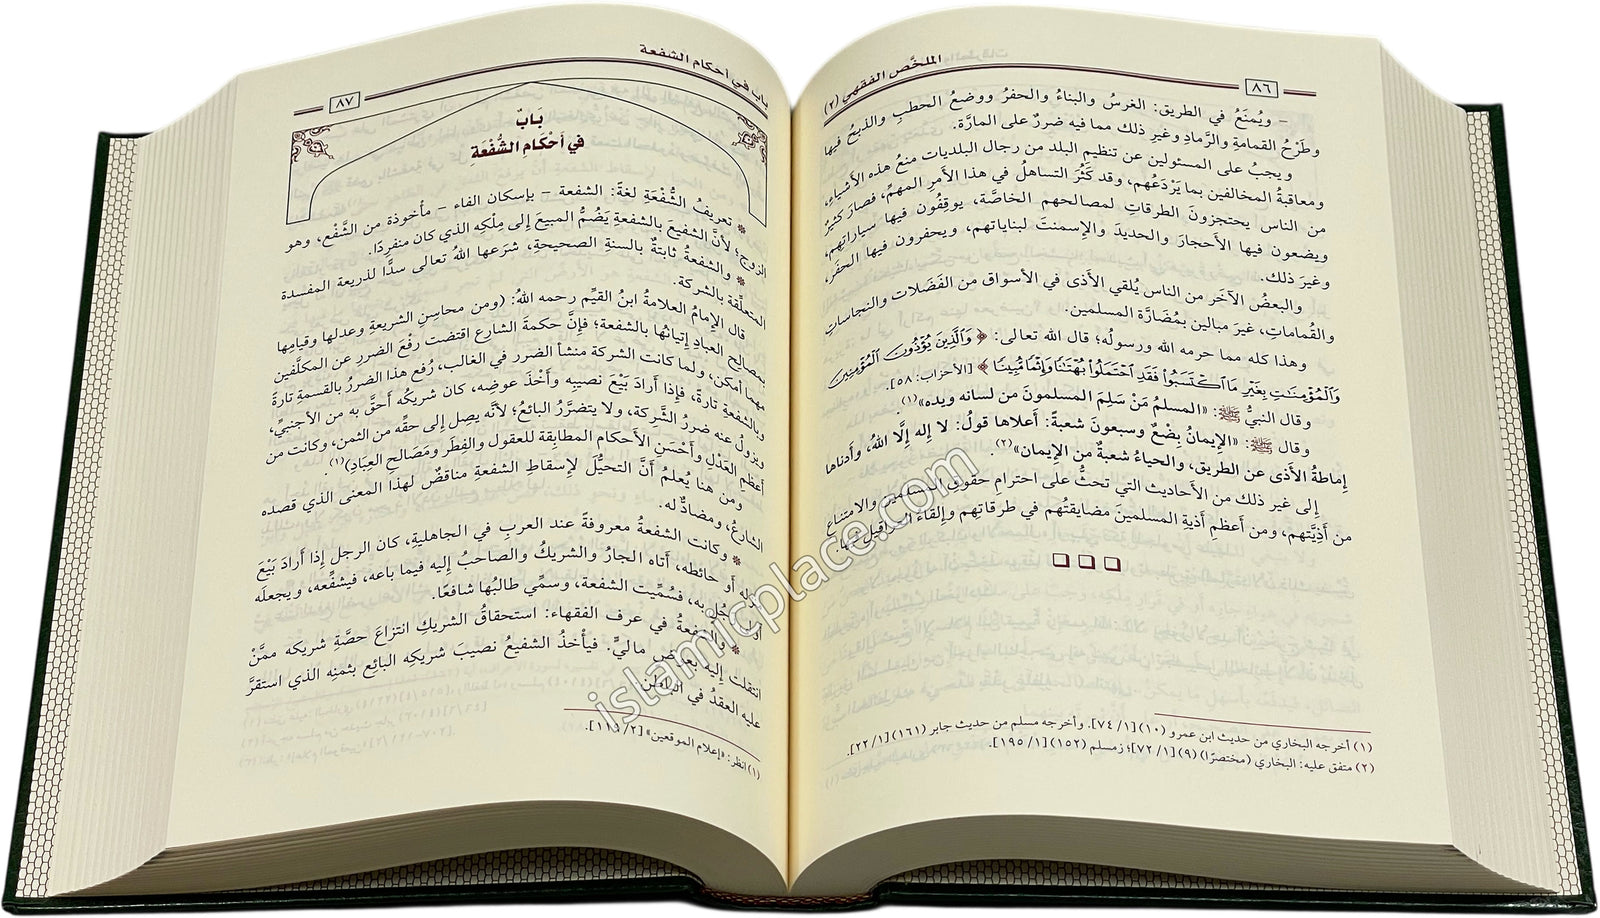 ٨٦
الملخَّص الفقهي (٢)
– ويُمنَعُ في الطريق: الغرسُ والبناءُ والحفرُ ووضعُ الحطبِ والذبحُ فيها
وطَرْحُ القمامةِ والرَّمادِ وغيرِ ذلك مما فيه ضررٌ على المارَّة.
ويجبُ على المسئولين عن تنظيم البلد من رجال البلديات منعُ هذه الأشياءِ،
ومعاقبةُ المخالفين بما يَرْدَعُهم، وقد كَثُرَ التساهلُ في هذا الأمرِ المهمِّ، فصارَ كثيرٌ
من الناس يحتجزونَ الطرقاتِ لمصالحهم الخاصَّة، يوقِفُون فيها سياراتِهم،
ويضعون فيها الأحجارَ والحديدَ والإسمنتَ لبناياتهم، ويحفرون فيها الحفَر،
وغيرَ ذلك.
والبعضُ الآخَر من الناس يُلقي الأذى في الأسواق من الفَضَلات والنجاساتِ
والقُماماتِ، غيرَ مبالين بمُضَارَّة المسلمين.
وهذا كله مما حرمه الله ورسولُه؛ قال الله تعالى: ﴿ وَٱلَّذِينَ يُؤْذُونَ ٱلْمُؤْمِنِينَ
وَٱلْمُؤْمِنَٰتِ بِغَيْرِ مَا ٱكْتَسَبُوا۟ فَقَدِ ٱحْتَمَلُوا۟ بُهْتَٰنًا وَإِثْمًا مُّبِينًا ﴾ [الأحزاب: ٥٨].
وقال النبيُّ ﷺ: «المسلمُ مَنْ سَلِمَ المسلمونَ من لسانه ويده»(١).
وقال ﷺ: «الإيمانُ بِضْعٌ وسبعونَ شعبةً: أعلاها قولُ: لا إله إلَّا اللهُ، وأدناها
إماطةُ الأذى عن الطريق، والحياءُ شعبةٌ من الإيمان»(٢).
إلى غير ذلك من الأحاديث التي تحثُّ على احترامِ حقوقِ المسلمين والامتناعِ
من أَذِيَّتهم، ومن أعظمِ أذيةِ المسلمينَ مضايقتُهم في طرقاتِهم وإلقاءُ العراقيل فيها.
(١) أخرجه البخاري من حديث ابن عمرو (١٠) [١/ ٧٤]. وأخرجه مسلم من حديث جابر (١٦١) [١/ ٢٢].
(٢) متفق عليه: البخاري (مختصرًا) (٩) [١/ ٧٢]؛ زمسلم (١٥٢) [١/ ١٩٥].
باب في أحكام الشفعة
٨٧
بَابٌ
في أَحْكَامِ الشُّفْعَة
* تعريفُ الشُّفْعَةِ لغةً: الشفعة – بإسكان الفاء – مأخوذة من الشَّفْع، وهو
الزوج؛ لأنَّ الشفيعَ بالشفعةِ يَضُمُّ المبيعَ إلى مِلْكِه الذي كان منفردًا.
* والشفعةُ ثابتةٌ بالسنةِ الصحيحةِ، شرَعها اللهُ تعالى سدًّا لذريعة المفسدة
المتعلَّقة بالشركة.
قال الإمامُ العلامةُ ابنُ القيِّم رحمه اللهُ: (ومن محاسِنِ الشريعةِ وعدلها وقيامِها
بمصالح العبادِ إتيانُها بالشفعة؛ فإنَّ حكمةَ الشارع اقتضت رفْعَ الضررِ عن المكلَّفين
مهما أمكن، ولما كانت الشركة منشأَ الضرر في الغالب، رُفع هذا الضررُ بالقسمةِ تارةً
وبالشفعةِ تارةً، فإذا أرادَ بَيْعَ نصيبِه وأَخْذَ عوضِه، كان شريكُه أحَقَّ به من الأجنبيِّ،
ويزولُ عنه ضررُ الشَّرِكة، ولا يتضرَّرُ البائعُ؛ لأنَّه يصِل إلى حقِّه من الثمن، وكانت من
أعظمِ العَدْلِ وأَحْسَنِ الأحكام المطابِقة للعقول والفِطَر ومَصَالح العِبَادِ)(١).
ومن هنا يُعلمُ أَنَّ التحيُّلَ لإسقاطِ الشفعةِ مناقضٌ لهذا المعنى الذي قصده
الشارعُ، ومضادٌّ له.
* وكانت الشفعةُ معروفةً عند العربِ في الجاهليةِ، كان الرجل إذا أرادَ بَيْعَ
أو حائطِه، أتاه الجارُ والشريكُ والصاحبُ إليه فيما باعه، فيشفِّعه، ويجعلَه
به، فسُمِّيت الشفعة، وسمِّي طالبُها شافعًا.
* والشفعةُ في عرف الفقهاء: استحقاقُ الشريكِ انتزاعَ حصَّةِ شريكه ممَّنْ
انتقلت إليه بعوض ماليٍّ. فيأخذُ الشفيعُ نصيبَ شريكِه البائع بثمنِه الذي استقرَّ
عليه العقدُ في الباطن
(١) انظر: «إعلام الموقعين» [٢/ ١١٩].
islamicplace.com